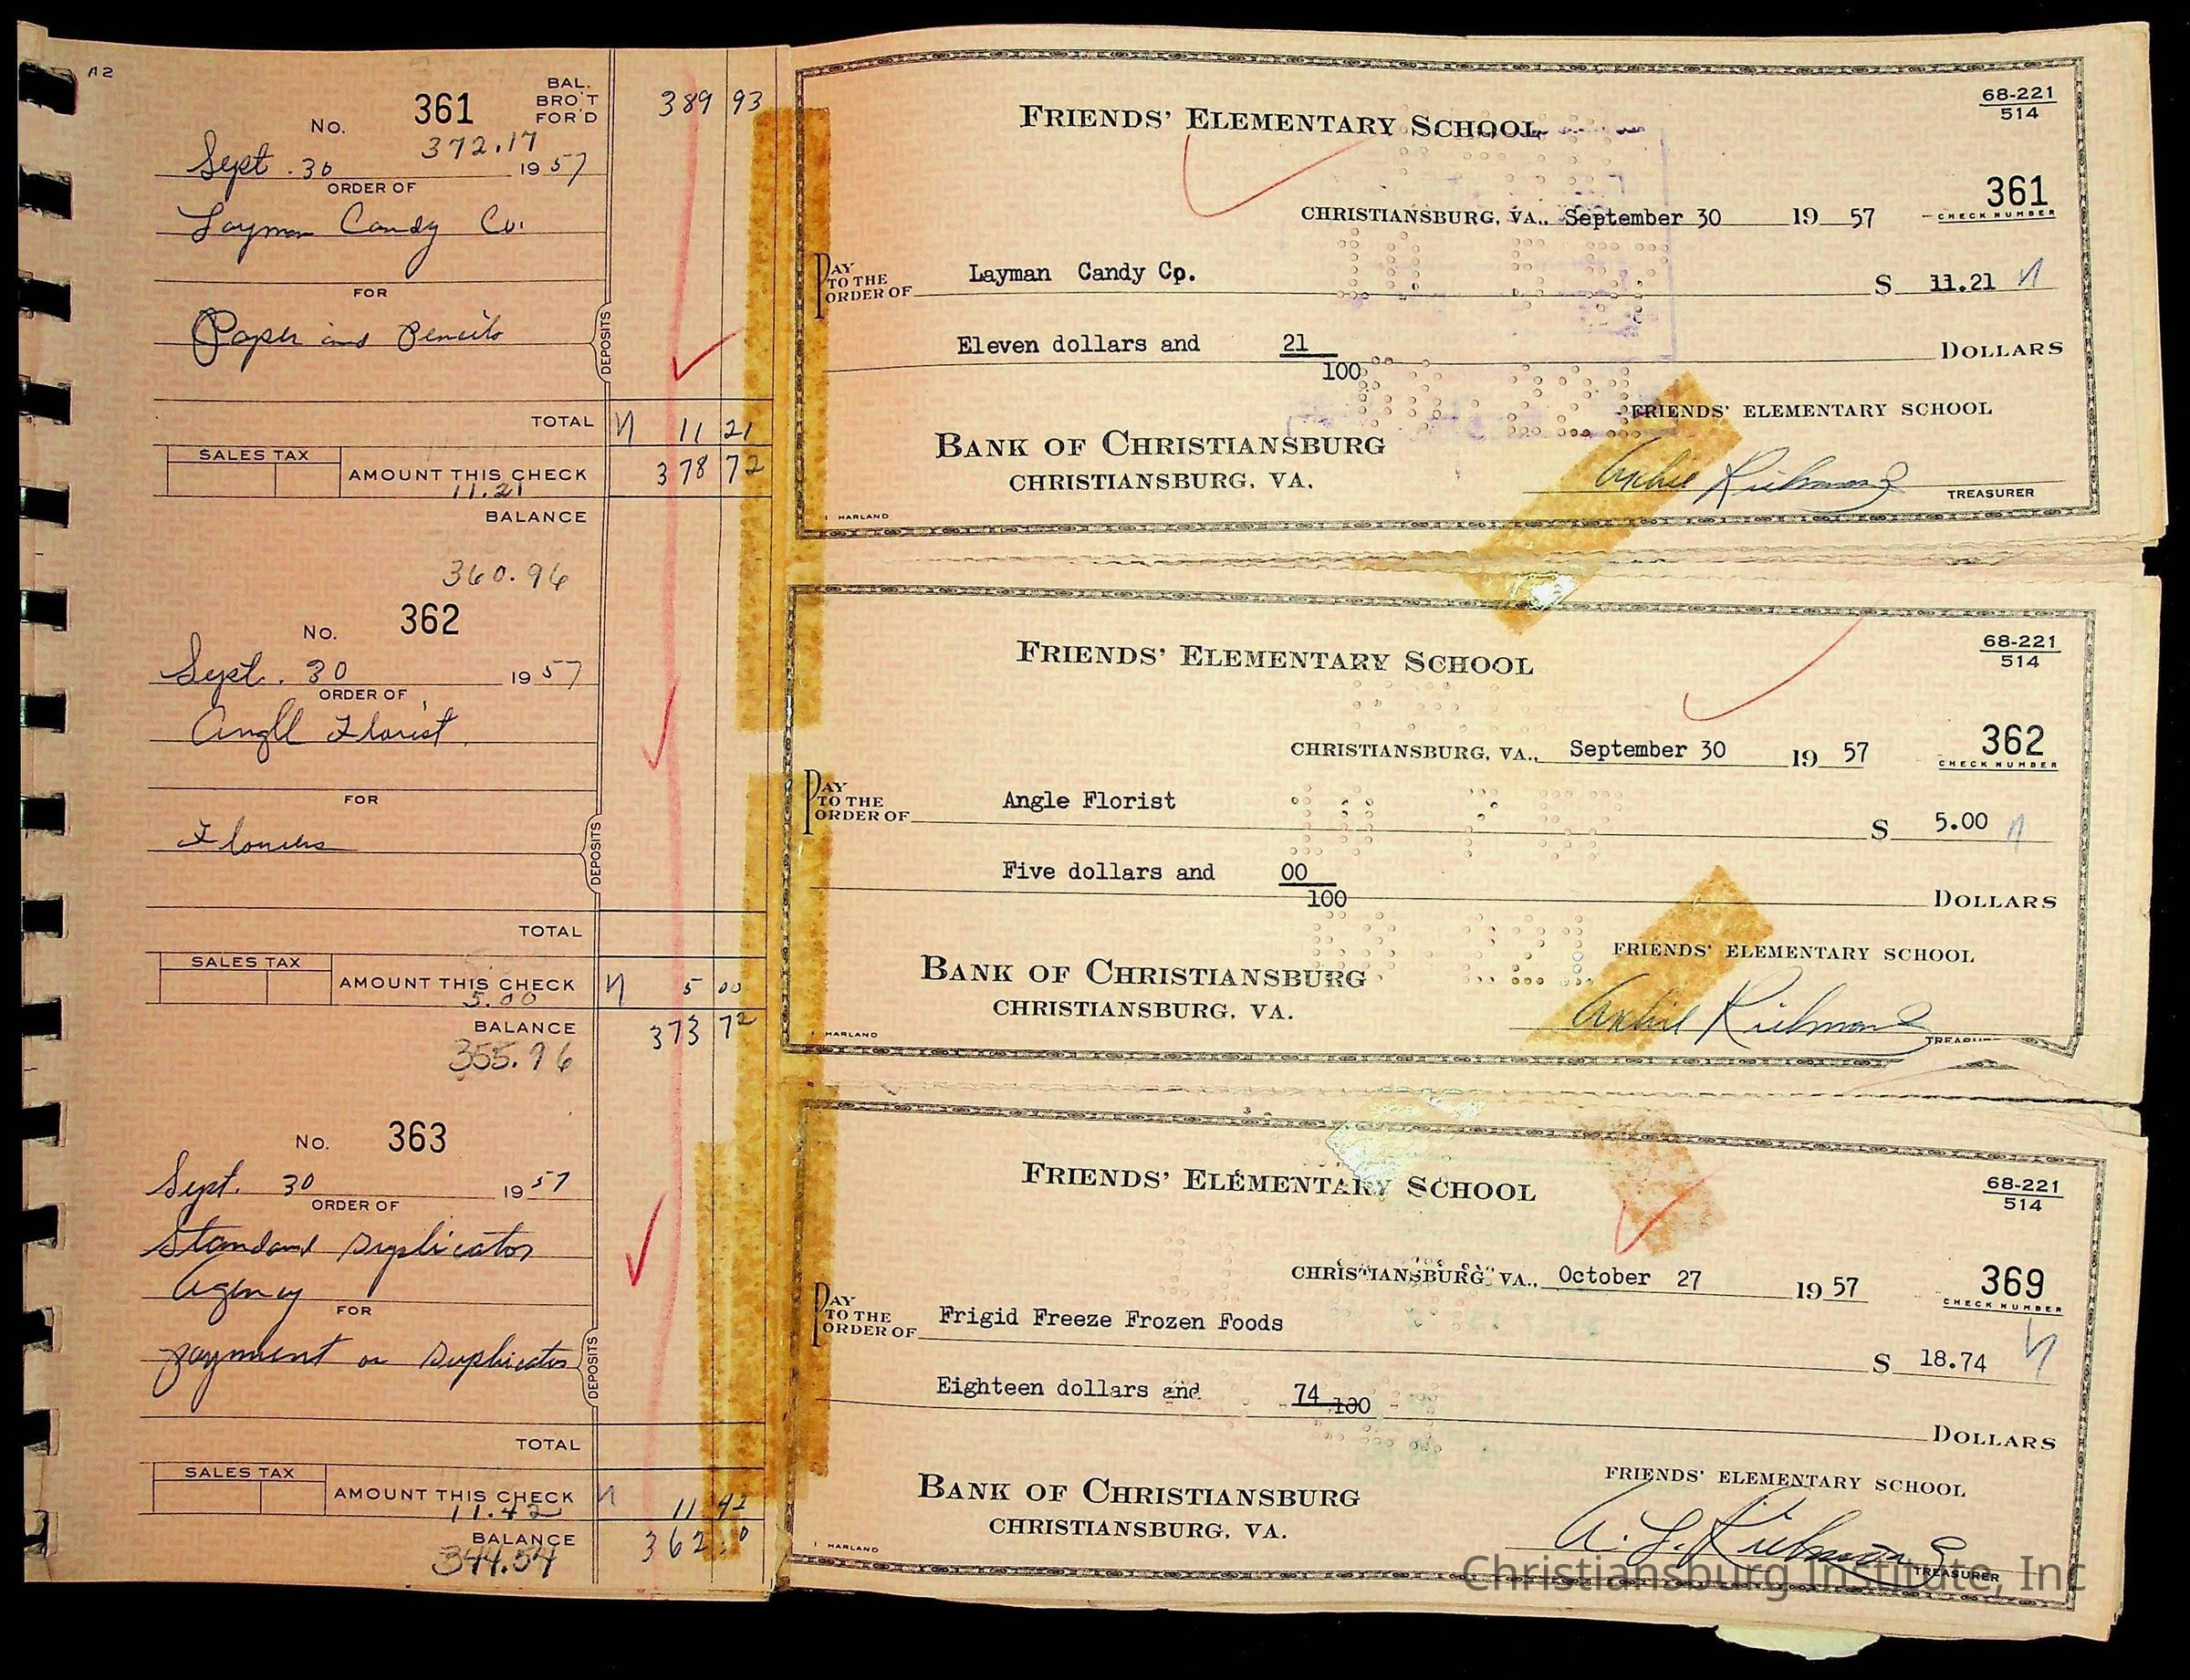 A2
No. 361 BAL. BRO'T FOR'D 389 93
372.17
Sept. 30 1957
ORDER OF
Layman Candy Co.
FOR
Paper and Pencils
DEPOSITS
TOTAL 11 21
SALES TAX
AMOUNT THIS CHECK 378 72
11.21
BALANCE
360.96
No. 362
Sept. 30 1957
ORDER OF
Angll Florist
FOR
Flowers
DEPOSITS
TOTAL
SALES TAX
AMOUNT THIS CHECK 5 00
5.00
BALANCE 373 72
355.96
No. 363
Sept. 30 1957
ORDER OF
Standard Duplicator
Agency
FOR
payment on Duplicator
DEPOSITS
TOTAL
SALES TAX
AMOUNT THIS CHECK 11 42
11.42
BALANCE 362
344.54
FRIENDS' ELEMENTARY SCHOOL
68-221
514
361
CHECK NUMBER
CHRISTIANSBURG, VA., September 30 1957
PAY TO THE ORDER OF Layman Candy Co. $ 11.21
Eleven dollars and 21/100 DOLLARS
FRIENDS' ELEMENTARY SCHOOL
BANK OF CHRISTIANSBURG
CHRISTIANSBURG, VA.
Archie Richmond
TREASURER
HARLAND
FRIENDS' ELEMENTARY SCHOOL
68-221
514
362
CHECK NUMBER
CHRISTIANSBURG, VA., September 30 1957
PAY TO THE ORDER OF Angle Florist $ 5.00
Five dollars and 00/100 DOLLARS
FRIENDS' ELEMENTARY SCHOOL
BANK OF CHRISTIANSBURG
CHRISTIANSBURG, VA.
Archie Richmond
HARLAND
FRIENDS' ELEMENTARY SCHOOL
68-221
514
369
CHECK NUMBER
CHRISTIANSBURG, VA., October 27 1957
PAY TO THE ORDER OF Frigid Freeze Frozen Foods $ 18.74
Eighteen dollars and 74/100 DOLLARS
FRIENDS' ELEMENTARY SCHOOL
BANK OF CHRISTIANSBURG
CHRISTIANSBURG, VA.
A. L. Richmond
TREASURER
HARLAND
Christiansburg Institute, Inc